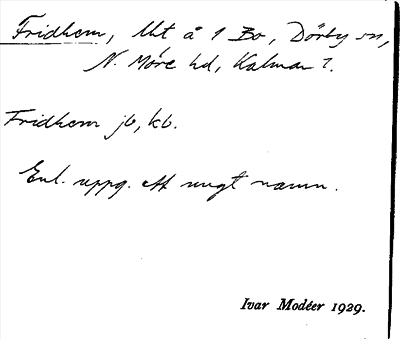 Fridhem, lht å 1 Bo, Dörby sn,
N. Möre hd, Kalmar l.
Fridhem jb, kb.
Enl. uppg. ett ungt namn.
Ivar Modéer 1929.